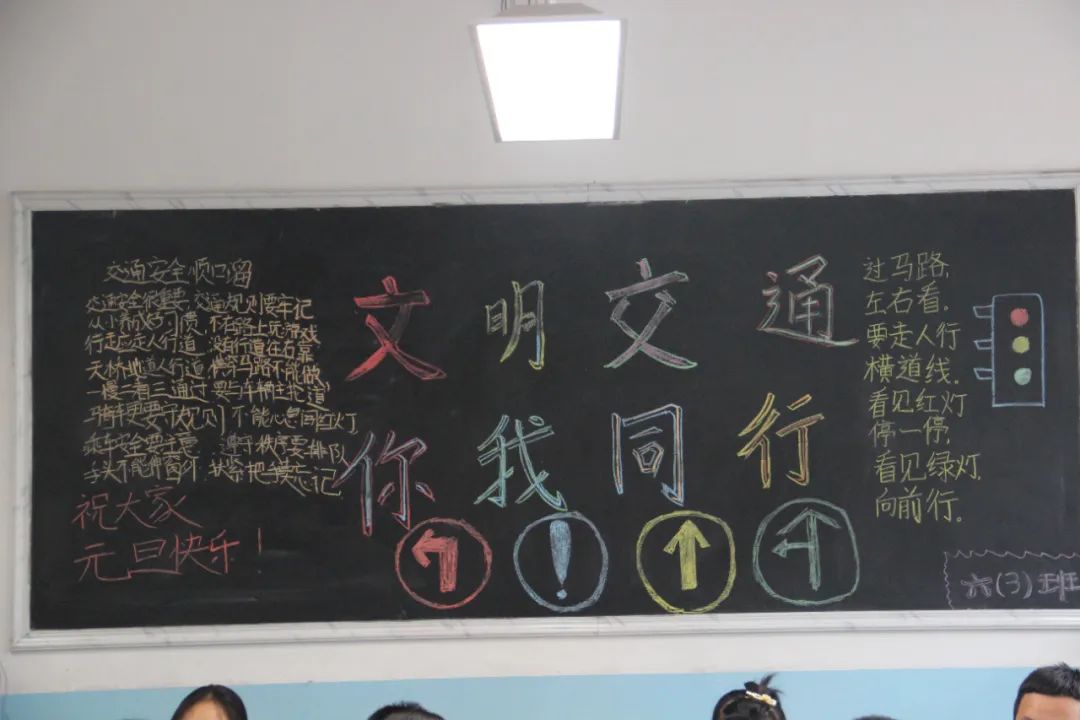 交通安全顺口溜
交通安全很重要,交通规则要牢记
从小养成好习惯,不在路上玩游戏
行走应走人行道,没有行道往右靠
天桥地道人行道,横穿马路不能做
一慢二看三通过,要与车辆抢道
骑车更要守规则,不能心急闯红灯
乘车安全要注意,遵守秩序要排队
手头不能伸窗外,扶紧把手莫忘记
祝大家
元旦快乐!
文明交通
你我同行
过马路,
左右看,
要走人行
横道线.
看见红灯
停一停,
看见绿灯,
向前行.
六(3)班